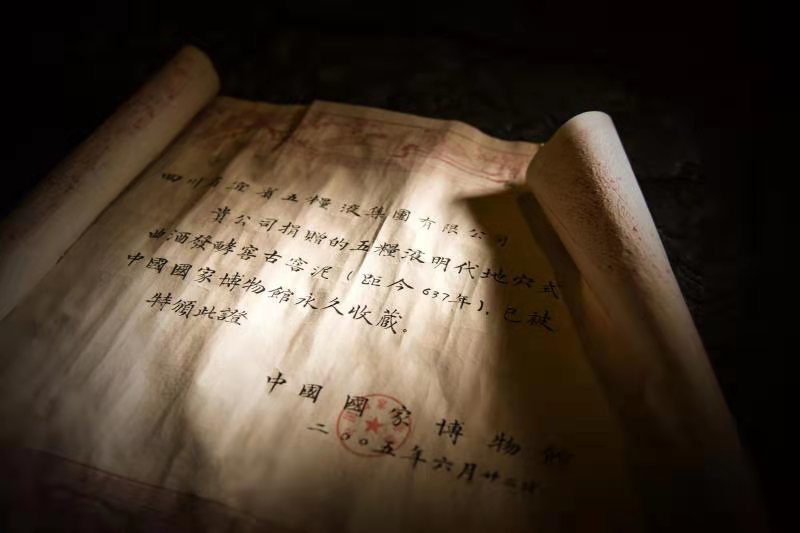 四川省宜賓五糧液集團有限公司
貴公司捐贈的五糧液明代地穴式
曲酒發酵窖古窖泥（距今637年），已被
中國國家博物館永久收蔵。
特頒此證
中國國家博物館
二00五年六月廿